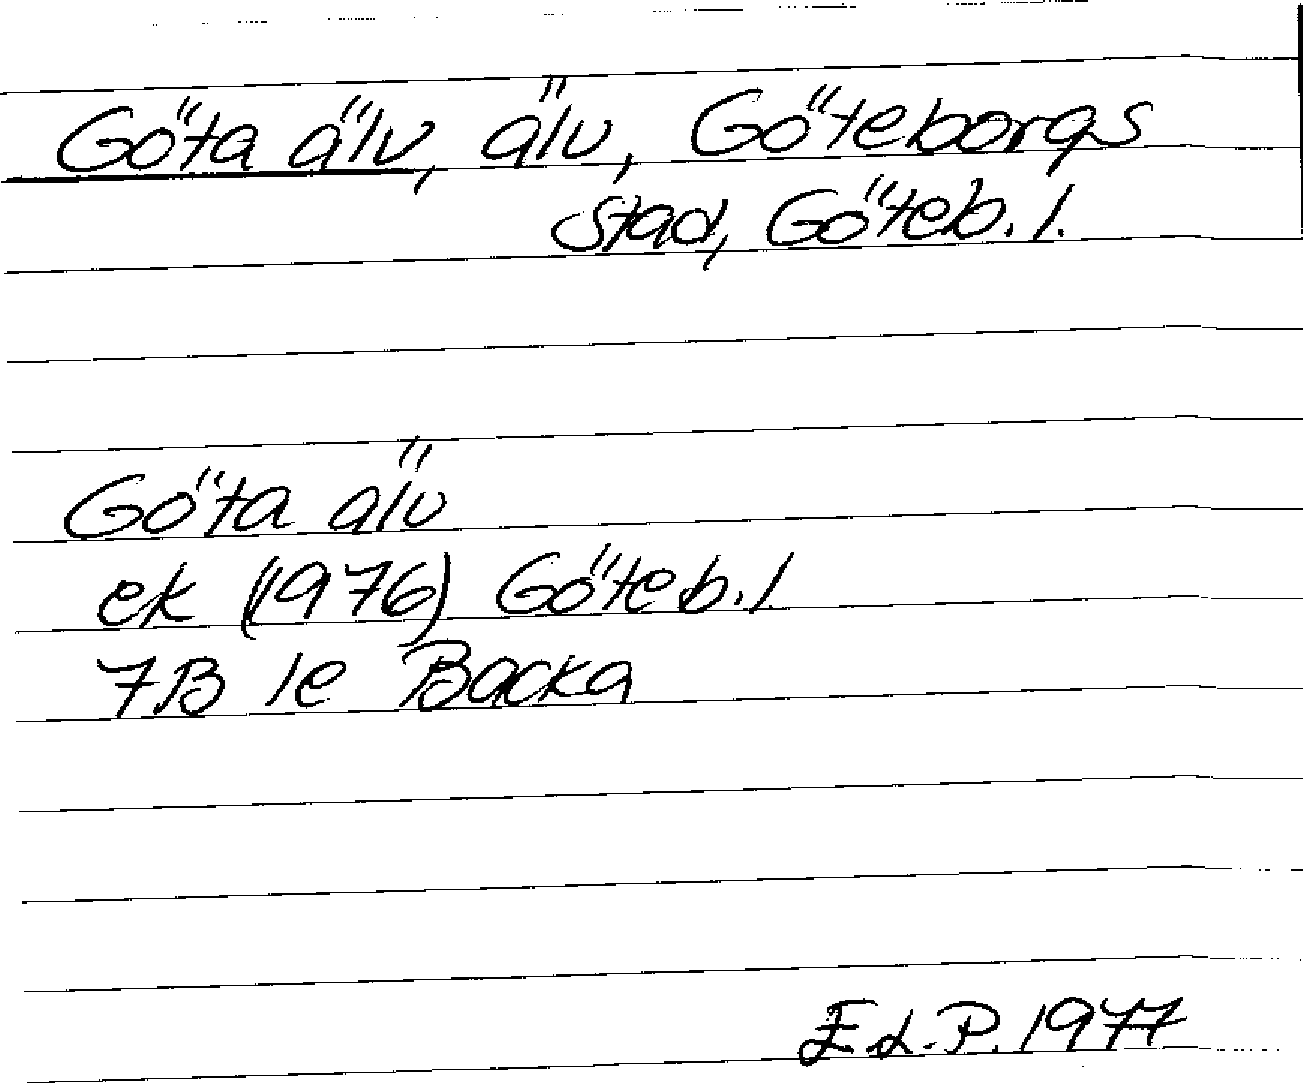 Göta älv, älv, Göteborgs
stad, Göteb. l.
Göta älv
ek (1976) Göteb. l.
7B 1e Backa
E.L.P. 1977